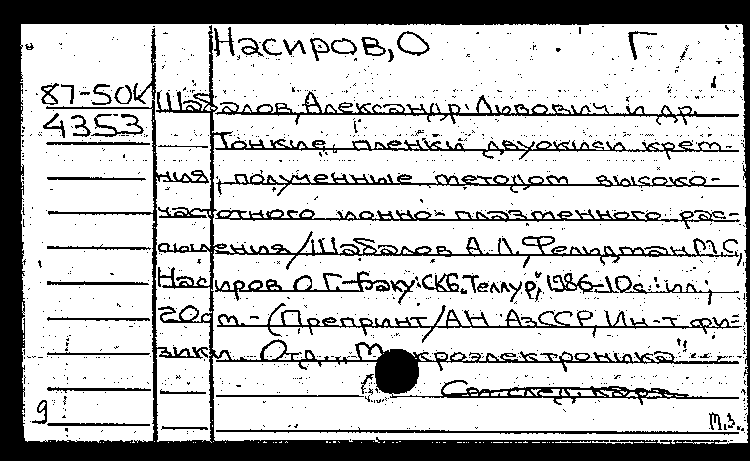 Насиров, О Г
87-50К
4353
Шабалов, Александр Львович и др.
Тонкие пленки двуокиси крем-
ния, полученные методом высоко-
частотного ионно-плазменного рас-
пыления/Шабалов А.Л., Фельдман М.С.,
Насиров О.Г.-Баку: СКБ „Теллур", 1986-10с.: ил.;
20см.-(Препринт/АН АзССР, Ин-т фи-
зики. Отд. „М кроэлектроника"
См. след. карт.
9
т.з.